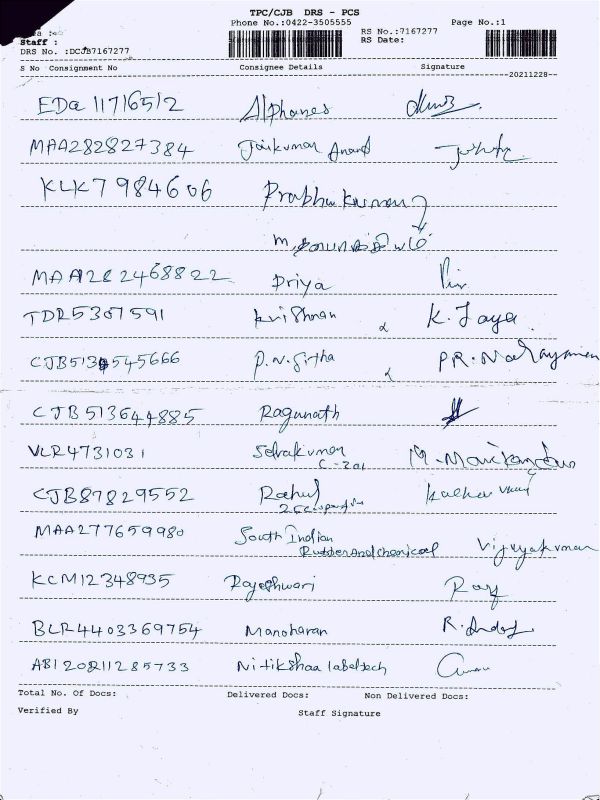 TPC/CJB DRS - PCS
Phone No.:0422-3505555 Page No.:1
RS No.:7167277
Staff : RS Date:
DRS No. :DCJB7167277
S No Consignment No Consignee Details Signature
--20211228--
EDQ 11716512 Alphones
MAA282827384 Jaikumar Anand
KLK7984606 Prabhu kumar
MAA282468822 Priya
TDR5307591 krishnan K. Jaya
CJB513545665 P.N. Girtha PR. Narayanan
CJB513644885 Ragunath
VLR4731031 Selvakumar M. Manikandan
C-201
CJB87829552 Rahul
MAA277659980 South Indian Vijayakumar
Rubber and chemical
KCM12348935 Rajeshwari Raj
BLR4403369754 Manoharan
AB120211285733 Nitikshaa labeltech
Total No. Of Docs: Delivered Docs: Non Delivered Docs:
Verified By Staff Signature